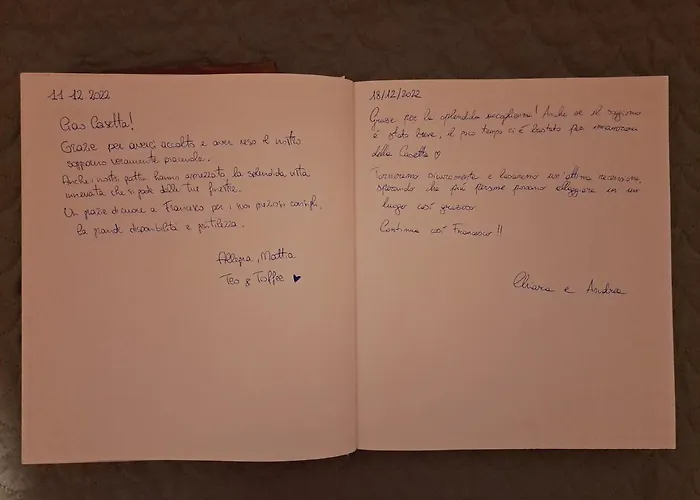 11.12.2022
Ciao Casetta!
Grazie per averci accolto e aver reso il nostro
soggiorno veramente piacevole.
Anche i nostri gatti hanno apprezzato la splendida vista
innevata che si gode dalle tue finestre.
Un grazie di cuore a Francesco per i suoi preziosi consigli,
la grande disponibilità e gentilezza.
Allegra, Mattia
Teo & Toffee ♥
18/12/2022
Grazie per la splendida accoglienza! Anche se il soggiorno
è stato breve, il poco tempo ci è bastato per innamorarci
della Casetta ♡
Torneremo sicuramente e lasceremo un'ottima recensione,
sperando che più persone possano alloggiare in un
luogo così grazioso.
Continua così Francesco!!
Chiara e Andrea